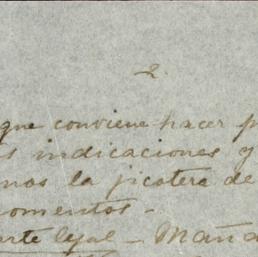 2.
que conviene hacer p
s indicaciones y
nos la jicotera de
omentos –
arte legal – Maña